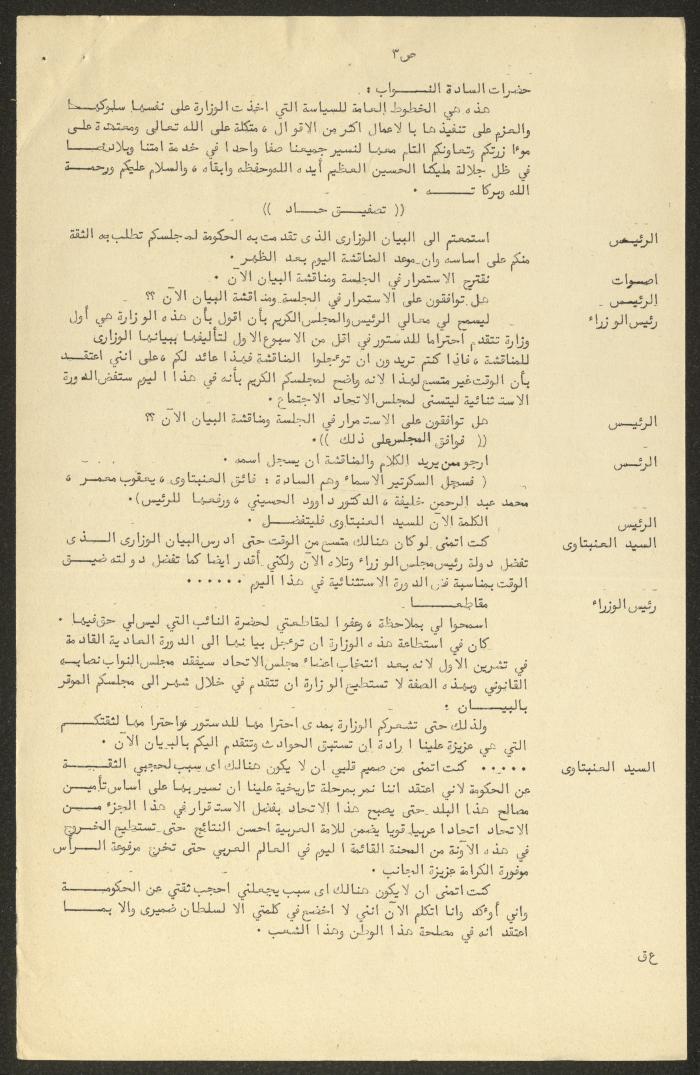 ص ٣
حضرات السادة النـــــواب :
هذه هي الخطوط العامة للسياسة التي اخذت الوزارة على نفسها سلوكهـــا
والعزم على تنفيذها بالاعمال اكثر من الاقوال ، متكلة على الله تعالى ومعتمدة على
موءازرتكم وتعاونكم التام معها لنسير جميعنا صفا واحدا في خدمة امتنا وبلادنـــا
في ظل جلالة مليكنا الحسين العظيم أيده الله وحفظه وابقاه ، والسلام عليكم ورحمـــة
الله وبركاتـــــه .
(( تصفيـــق حـــاد ))
الرئيـس استمعتم الى البيان الوزارى الذى تقدمت به الحكومة لمجلسكم تطلب به الثقة
منكم على اساسه وان موعد المناقشة اليوم بعد الظهر .
اصـوات نقترح الاستمرار في الجلسة ومناقشة البيان الآن .
الرئيـس هل توافقون على الاستمرار في الجلسة ومناقشة البيان الآن ؟؟
رئيس الوزراء ليسمح لي معالي الرئيس والمجلس الكريم بأن اقول بأن هذه الوزارة هي أول
وزارة تتقدم احتراما للدستور في اقل من الاسبوع الاول لتأليفها ببيانها الوزارى
للمناقشة ، فاذا كنتم تريدون ان توءجلوا المناقشة فهذا عائد لكم ، على انني اعتقـــد
بأن الوقت غير متسع لهذا لانه واضح لمجلسكم الكريم بأنه في هذا اليوم ستفض الدورة
الاستثنائية ليتسنى لمجلس الاتحاد الاجتماع .
الرئيـس هل توافقون على الاستمرار في الجلسة ومناقشة البيان الآن ؟؟
(( فوافق المجلس على ذلك )).
الرئس ارجو ممن يريد الكلام والمناقشة ان يسجل اسمه .
( فسجل السكرتير الاسماء وهم السادة : فائق العنبتاوى ، يعقوب معمـر ،
محمد عبد الرحمن خليفة ، الدكتور داوود الحسيني ، ورفعها للرئيس ).
الرئيس الكلمة الآن للسيد العنبتاوى فليتفضـــل .
السيد العنبتاوى كنت اتمنى لو كان هنالك متسع من الوقت حتى ادرس البيان الوزارى الـــذى
تفضل دولة رئيس مجلس الوزراء وتلاه الآن ولكني أقدر ايضا كما تفضل دولته ضيـــق
الوقت بمناسبة فض الدورة الاستثنائية في هذا اليوم ......
رئيس الوزراء مقاطعـــــا
اسمحوا لي بملاحظة ، وعفوا لمقاطعتي لحضرة النائب التي ليس لي حق فيها .
كان في استطاعة هذه الوزارة ان توءجل بيانها الى الدورة العادية القادمة
في تشرين الاول لانه بعد انتخاب اعضاء مجلس الاتحاد سيفقد مجلس النواب نصابـــه
القانوني وبهذه الصفة لا تستطيع الوزارة ان تتقدم في خلال شهر الى مجلسكم الموقر
بالبيـــــان :
ولذلك حتى تشعركم الوزارة بمدى احترامها للدستور واحترامها لثقتكـــم
التي هي عزيزة علينا ارادة ان تستبق الحوادث وتتقدم اليكم بالبيان الآن .
السيد العنبتاوى ..... كنت اتمنى من صميم قلبي ان لا يكون هنالك اى سبب لحجبي الثقـــة
عن الحكومة لاني اعتقد اننا نمر بمرحلة تاريخية علينا ان نسير بها على أساس تأميـــن
مصالح هذا البلد حتى يصبح هذا الاتحاد بفضل الاستقرار في هذا الجزء مـــن
الاتحاد اتحادا عربيا قويا يضمن للامة العربية احسن النتائج حتى تستطيع الخـروج
في هذه الآونة من المحنة القائمة اليوم في العالم العربي حتى تخرج مرفوعة الـــرأس
موفورة الكرامة عزيزة الجانب .
كنت اتمنى ان لا يكون هنالك اى سبب يجعلني احجب ثقتي عن الحكومـــة
واني أوءكد وانا اتكلم الآن انني لا اخضع في كلمتي الا لسلطان ضميرى والا بمـــا
اعتقد انه في مصلحة هذا الوطن وهذا الشعب .
ع ق